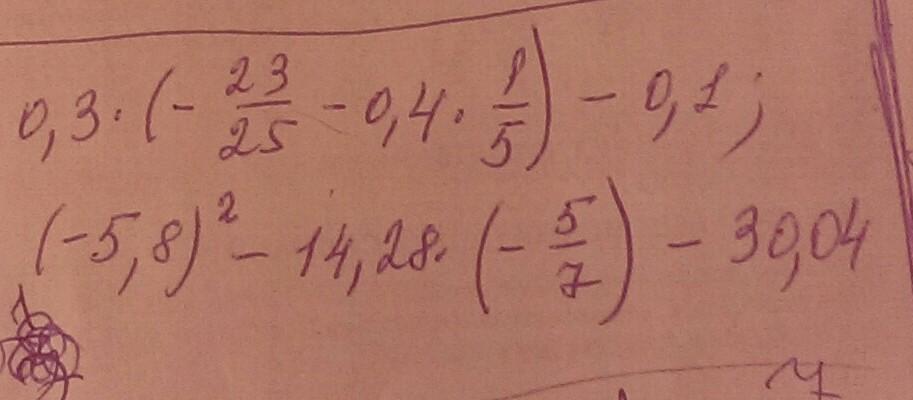 0,3 · (- 23/25 - 0,4 · 1/5) - 0,1;
(-5,8)² - 14,28 · (- 5/7) - 30,04